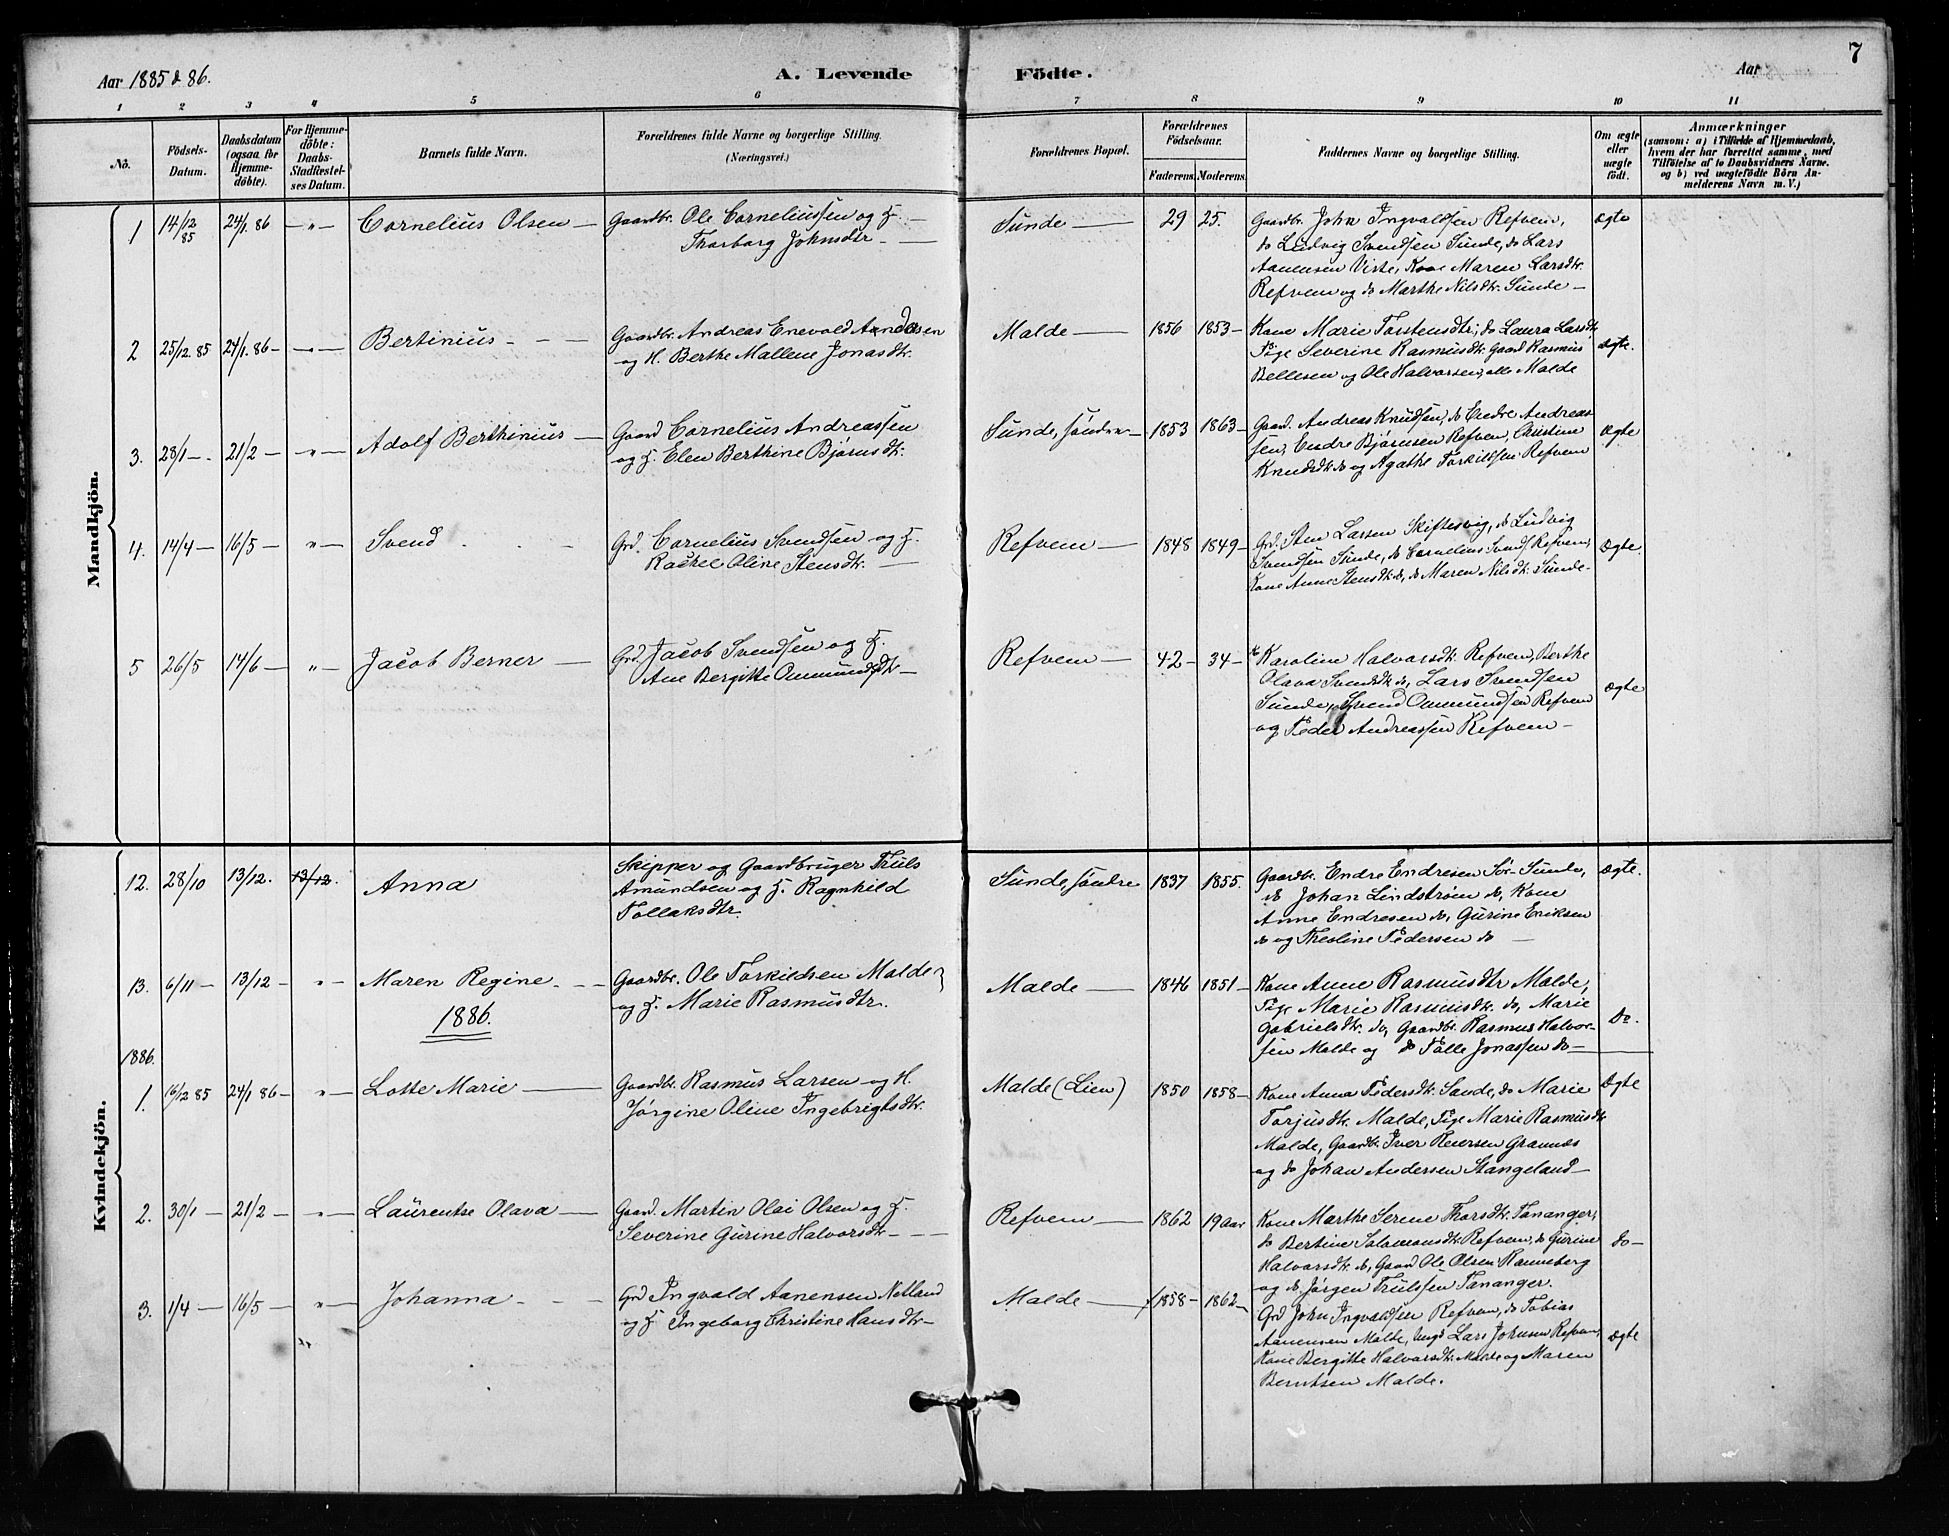 7
Aar 1885 & 86.
A. Levende
Födte.
Aar
1 2 3 4 5 6 7 8 9 10 11
No.
Födsels-
Datum.
Daabsdatum
(ogsaa for
Hjemme-
döbte).
For Hjemme-
döbte:
Daabs-
Stadfæstel-
ses Datum.
Barnets fulde Navn.
Forældrenes fulde Navne og borgerlige Stilling.
(Næringsvei.)
Forældrenes Bopæl.
Forældrenes
Födselsaar.
Faderens. Moderens.
Faddernes Navne og borgerlige Stilling.
Om ægte
eller
uægte
födt.
Anmærkninger
(saasom: a) i Tilfælde af Hjemmedaab,
hvem der har forrettet samme, med
Tilföielse af to Daabsvidners Navne,
og b) ved uægtefödte Börn An-
melderens Navn m. V.)
Mandkjön.
1 14/12 85 24/1. 86 — „ — Cornelius Olsen — Gaardbr. Ole Corneliussen og H. —
Thorborg Johnsdtr —
Sunde — 29 25. Gaardbr. John Ingvaldsen Refvem,
do Ludvig Svendsen Sunde, do Lars
Aanensen Viste, Kone Maren Larsdtr.
Refvem og do Marthe Nilsdtr. Sunde —
ægte
2 25/12. 85 24/1. 86 — — „ — Bertinius — — — Gaardbr. Andreas Enevold
og H. Berthe Mallene Jonasdtr.
Malde — 1856 1853 — Kone Marie Torstensdtr; do Laura Larsdtr,
Pige Severine Rasmusdtr. Gaard Rasmus
Bellesen og Ole Halvorsen, alle Malde
Ægte.
3. 28/1 — . 21/2 — „ — Adolf Berthinius — Gaard Cornelius Andreassen
og H. Elen Berthine Bjørnsdtr.
Sunde, söndre — 1853 1863 — Gaard. Andreas Knudsen, do Endre Andreas-
sen, Endre Bjørnsen Refvem, Christine
Knudsdtr. do og Agathe Torkildsen Refvem
Ægte
4. 14/4 — 16/5 — „ — Svend Grd. Cornelius Svendsen og H.
Rachel Oline Stensdtr. —
Refvem — 1848 1849 — Grd. Sten Larsen Skiftesvig, do Ludvig
Svendsen Sunde, do Cornelius Svends. Refvem,
Kone Anne Stensdtr. do, do Maren Nilsdtr. Sunde —
Ægte.
5 26/5 14/6 — „ — Jacob Berner — Grd. Jacob Svendsen og H.
Ane Bergitte Ommundsdtr —
Refvem — 42 — 34 — Karoline Halvorsdtr. Refvem, Berthe
Olava Svendsdtr. do, Lars Svendsen
Sunde, Svend Ommundsen Refvem
og Peder Andreassen Refvem —
Ægte
Kvindekjön.
12. 28/10 13/12. 13/12. Anna Skipper og Gaardbruger Truls
Amundsen og H. Ragnhild
Tollaksdtr.
Sunde, söndre 1837 1855. Gaardbr. Endre Endresen Sør-Sunde,
do Johan Lindstrøm do, Kone
Anne Endresen do, Gurine Eriksen
do og Theoline Pedersen do —
Ægte.
13. 6/11 — 13/12 — „ — Maren Regine — — Gaardbr. Ole Torkildsen Malde
og H. Marie Rasmusdtr.
Malde — 1846 1851 — Kone Anne Rasmusdtr Malde,
Pige Marie Rasmusdtr. do, Marie
Gabrielsdtr. do, Gaardbr. Rasmus Halvor-
sen Malde og do Tolle Jonassen do —
Do.
1886.
1886.
1. 16/12 85 24/1 86 — „ — Lotte Marie — Gaardbr. Rasmus Larsen og H.
Jørgine Oline Ingebrigtsdtr.
Malde (Lien) 1850 1858 — Kone Anna Pedersdtr. Sande, do Marie
Torjusdtr. Malde, Pige Marie Rasmusdtr
Malde, Gaardbr. Iver Reiersen Grannes
og do Johan Andersen Stangeland —
Ægte
2. 30/1 — 21/2 — „ — Laurentse Olava — Gaard. Martin Olai Olsen og H.
Severine Gurine Halvorsdtr — — —
Refvem — 1862 19 Aar Kone Marthe Serine Thorsdtr. Tananger,
do Bertine Salomonsdtr. Refvem, do Gurine
Halvorsdtr. do, Gaard Ole Olsen Ranneberg
og do, Jørgen Trulssen Tananger.
do —
3. 1/4 — 16/5 — „ — Johanna — — Grd Ingvald Aanensen Netland
og H. Ingeborg Christine Hansdtr —
Malde — 1858 — 1862 — Grd John Ingvaldsen Refvem, do Tobias
Aanensen Malde, Ungk Lars Johnsen Refvem,
Kone Bergitte Halvorsdtr. Malde og Maren
Berntsen Malde.
Ægte